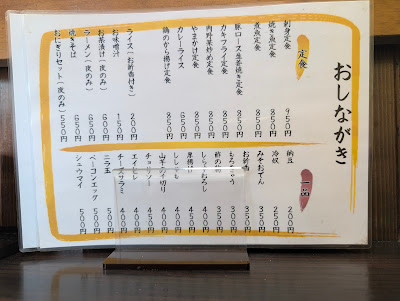 おしながき
定食
刺身定食 950円
焼き魚定食 850円
煮魚定食 850円
豚ロース生姜焼き定食 850円
カキフライ定食 850円
肉野菜炒め定食 850円
やまかけ定食 850円
カレーライス 650円
鶏のから揚げ定食 850円
ライス(お新香付き) 200円
お味噌汁 150円
お茶漬け(夜のみ) 600円
ラーメン(夜のみ) 600円
焼きそば 500円
おにぎりセット(夜のみ) 550円
一品
納豆 200円
冷奴 250円
みそおでん 350円
お新香 350円
もろきゅう 350円
酢の物 350円
しらすおろし 400円
厚揚げ 400円
ししゃも 400円
山芋千切り 400円
チョリソー 450円
エイヒレ 400円
チーズサラミ 400円
ニラ玉 500円
ベーコンエッグ 500円
シュウマイ 500円